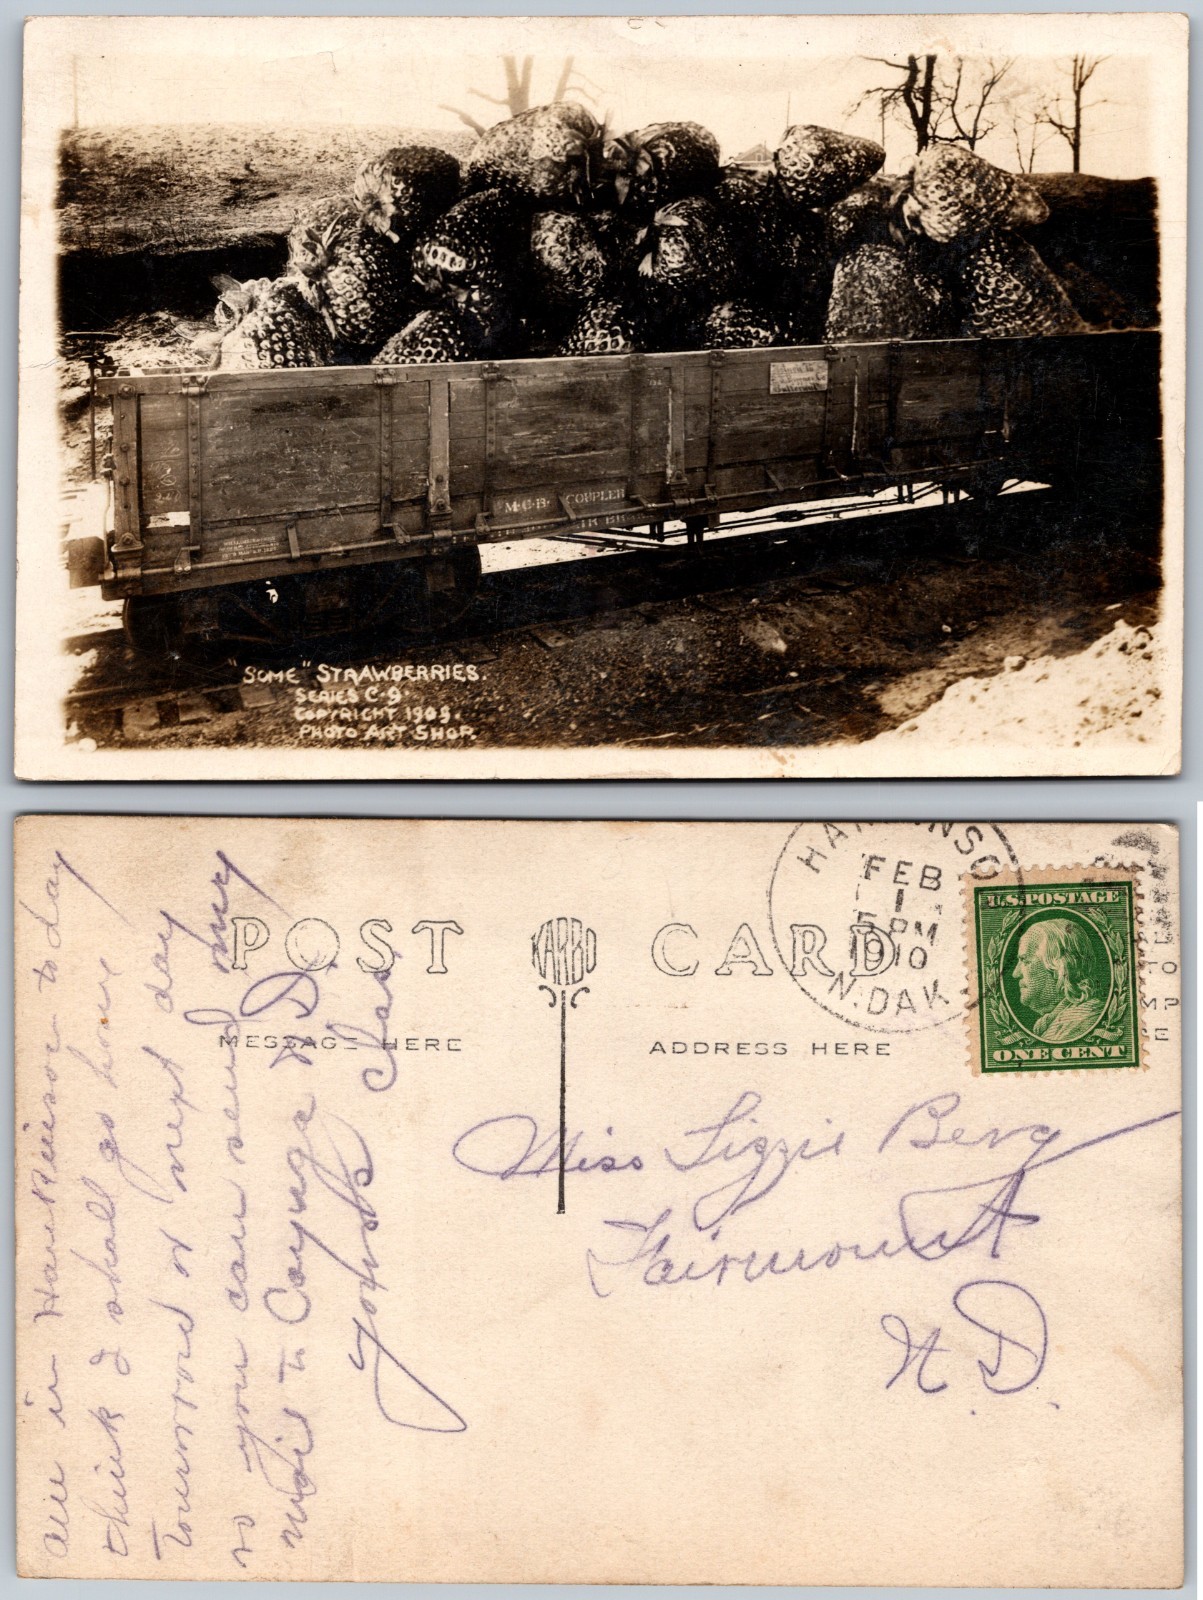 M.C.B. COUPLER
"SOME" STRAWBERRIES.
SERIES C-9.
COPYRIGHT 1909.
PHOTO ART SHOP.
POST CARD
KARBO
MESSAGE HERE
ADDRESS HERE
FEB
1
5 PM
1910
N. DAK
U.S. POSTAGE
ONE CENT
am in Hankinson to day
think I shall go home
Tomorrow or next day
so you can send my
mail to Cayuga N D.
yours Chas
Miss Lizzie Berg
Fairmount
N. D.